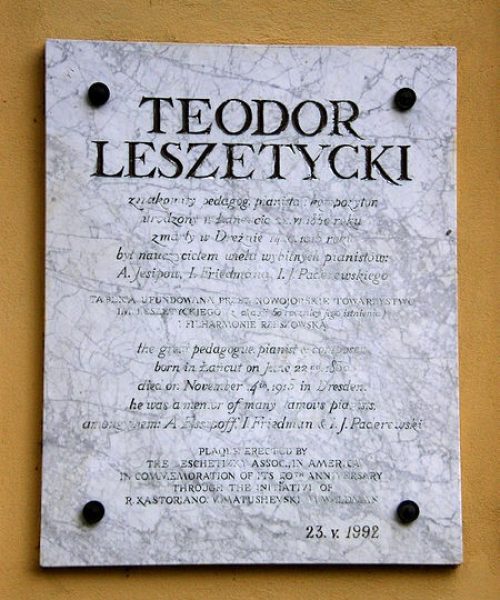 TEODOR
LESZETYCKI
znakomity pedagog, pianista i kompozytor
urodzony w Łańcucie 22.VI 1830 roku
zmarły w Dreźnie 14.XI.1915 roku
był nauczycielem wielu wybitnych pianistów:
A. Jesipow, I. Friedmana, I. J. Paderewskiego
TABLICA UFUNDOWANA PRZEZ NOWOJORSKIE TOWARZYSTWO
IM. LESZETYCKIEGO (z okazji 50 rocznicy jego istnienia)
I FILHARMONIĘ RZESZOWSKĄ
the great pedagogue, pianist & composer
born in Łańcut on June 22nd, 1830
died on November 14th, 1915 in Dresden.
he was a mentor of many famous pianists,
among them: A. Essipoff, I. Friedman & I. J. Paderewski
PLAQUE ERECTED BY
THE LESCHETIZKY ASSOC. IN AMERICA
IN COMMEMORATION OF ITS 50TH ANNIVERSARY
THROUGH THE INITIATIVE OF
R. KASTORIANO V. MATUSHEVSKI
23. V. 1992